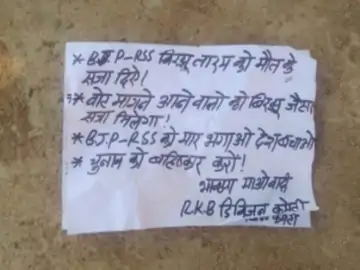 * B.J.P-RSS बिरझु तारम को मौत के
सजा दिए!
* वोट मांगने आने वालो को बिरझु जैसा
सजा मिलेगा!
* B.J.P-RSS को मार भगाओ देश बचाओ
* चुनाव को बहिष्कार करो!
भाकपा माओवादी
R.K.B डिविजन कमेटी